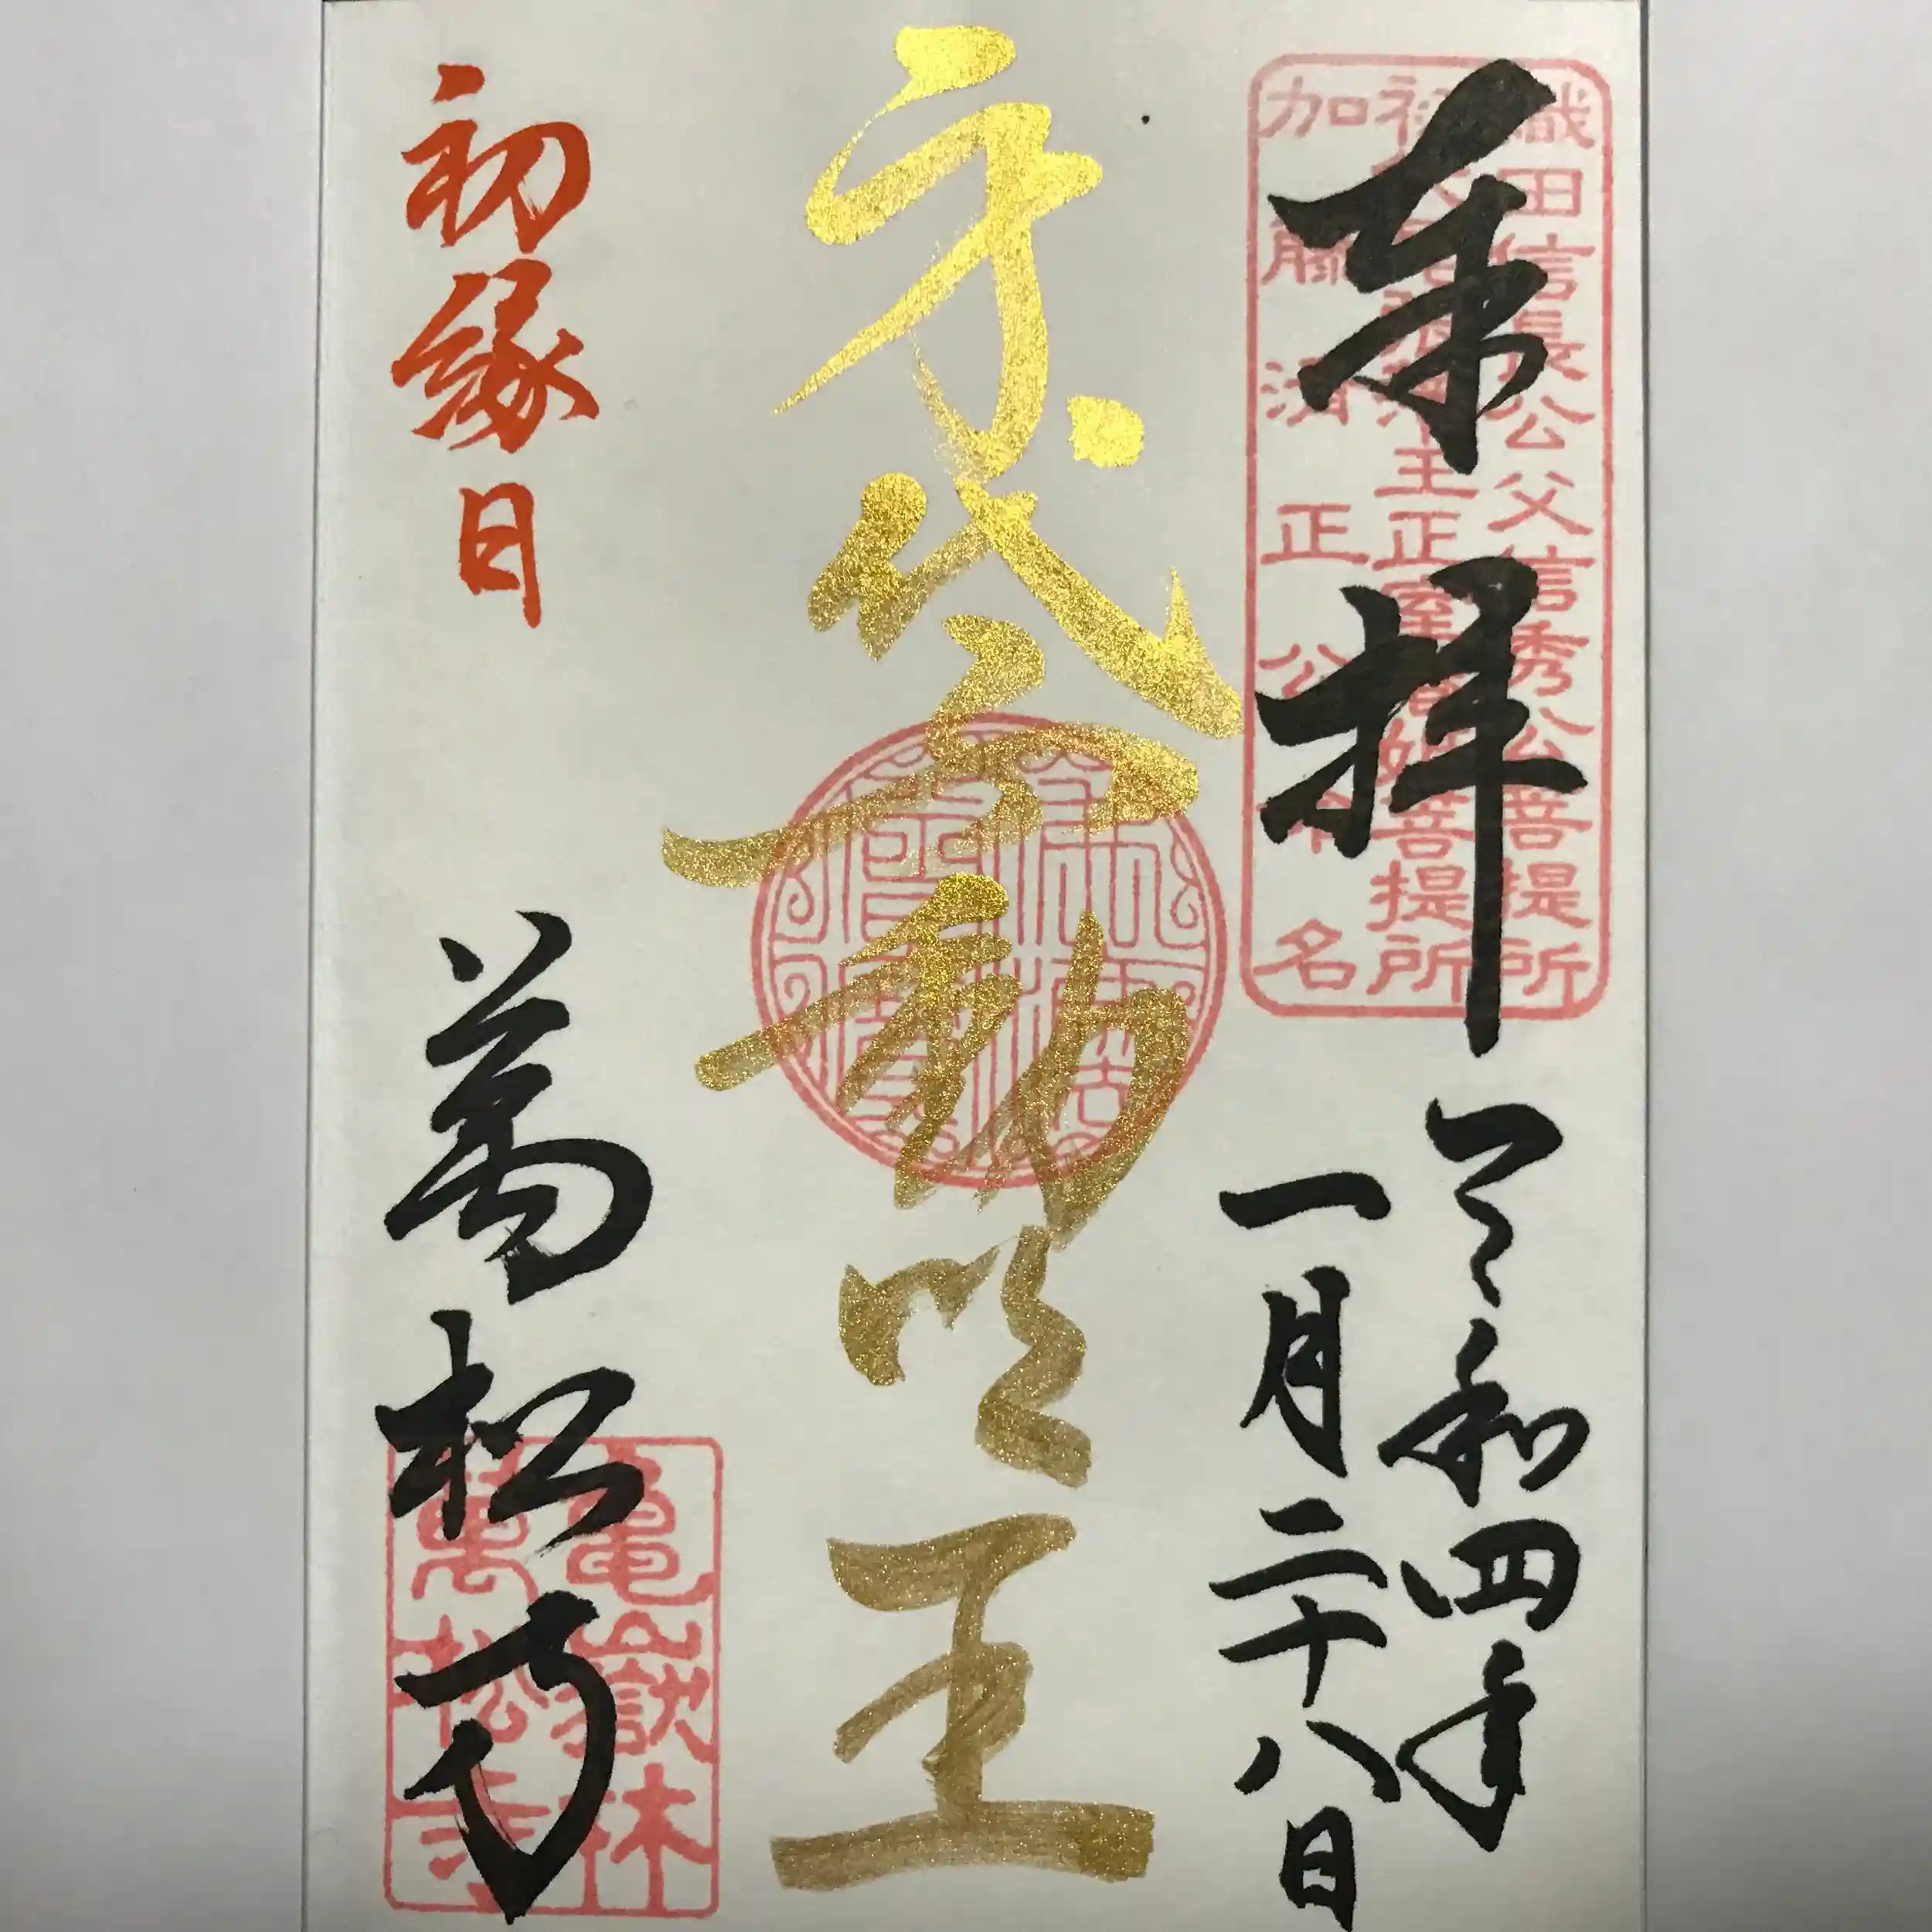 奉拝
令和四年
一月二十八日
織田信長公父信秀公菩提所
王正室 姫菩提所
加藤清正公 名
身代不動明王
初縁日
萬松寺
亀嶽林
萬松寺